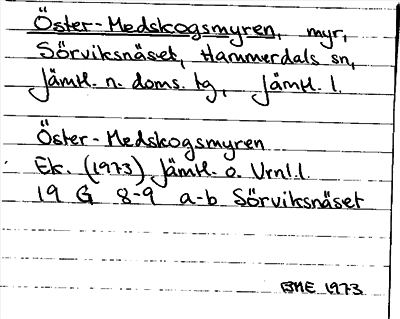 Öster-Medskogsmyren, myr,
Sörviksnäset, Hammerdals sn,
Jämtl. n. doms. tg, Jämtl. l.
Öster-Medskogsmyren
Ek. (1973) Jämtl. o. Vrnl.l.
19 G 8-9 a-b Sörviksnäset
BME 1973